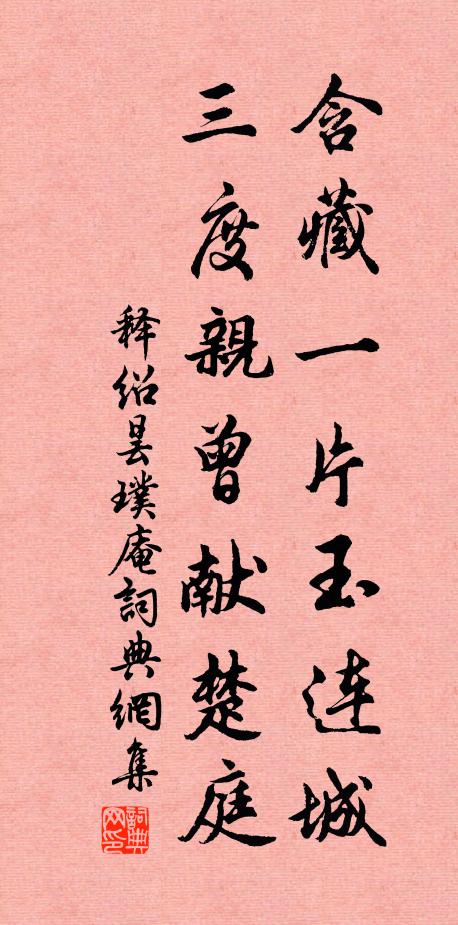 含藏一片玉连城
三度親曾献楚庭
释绍昙璞庵詞典網集
詞典网印